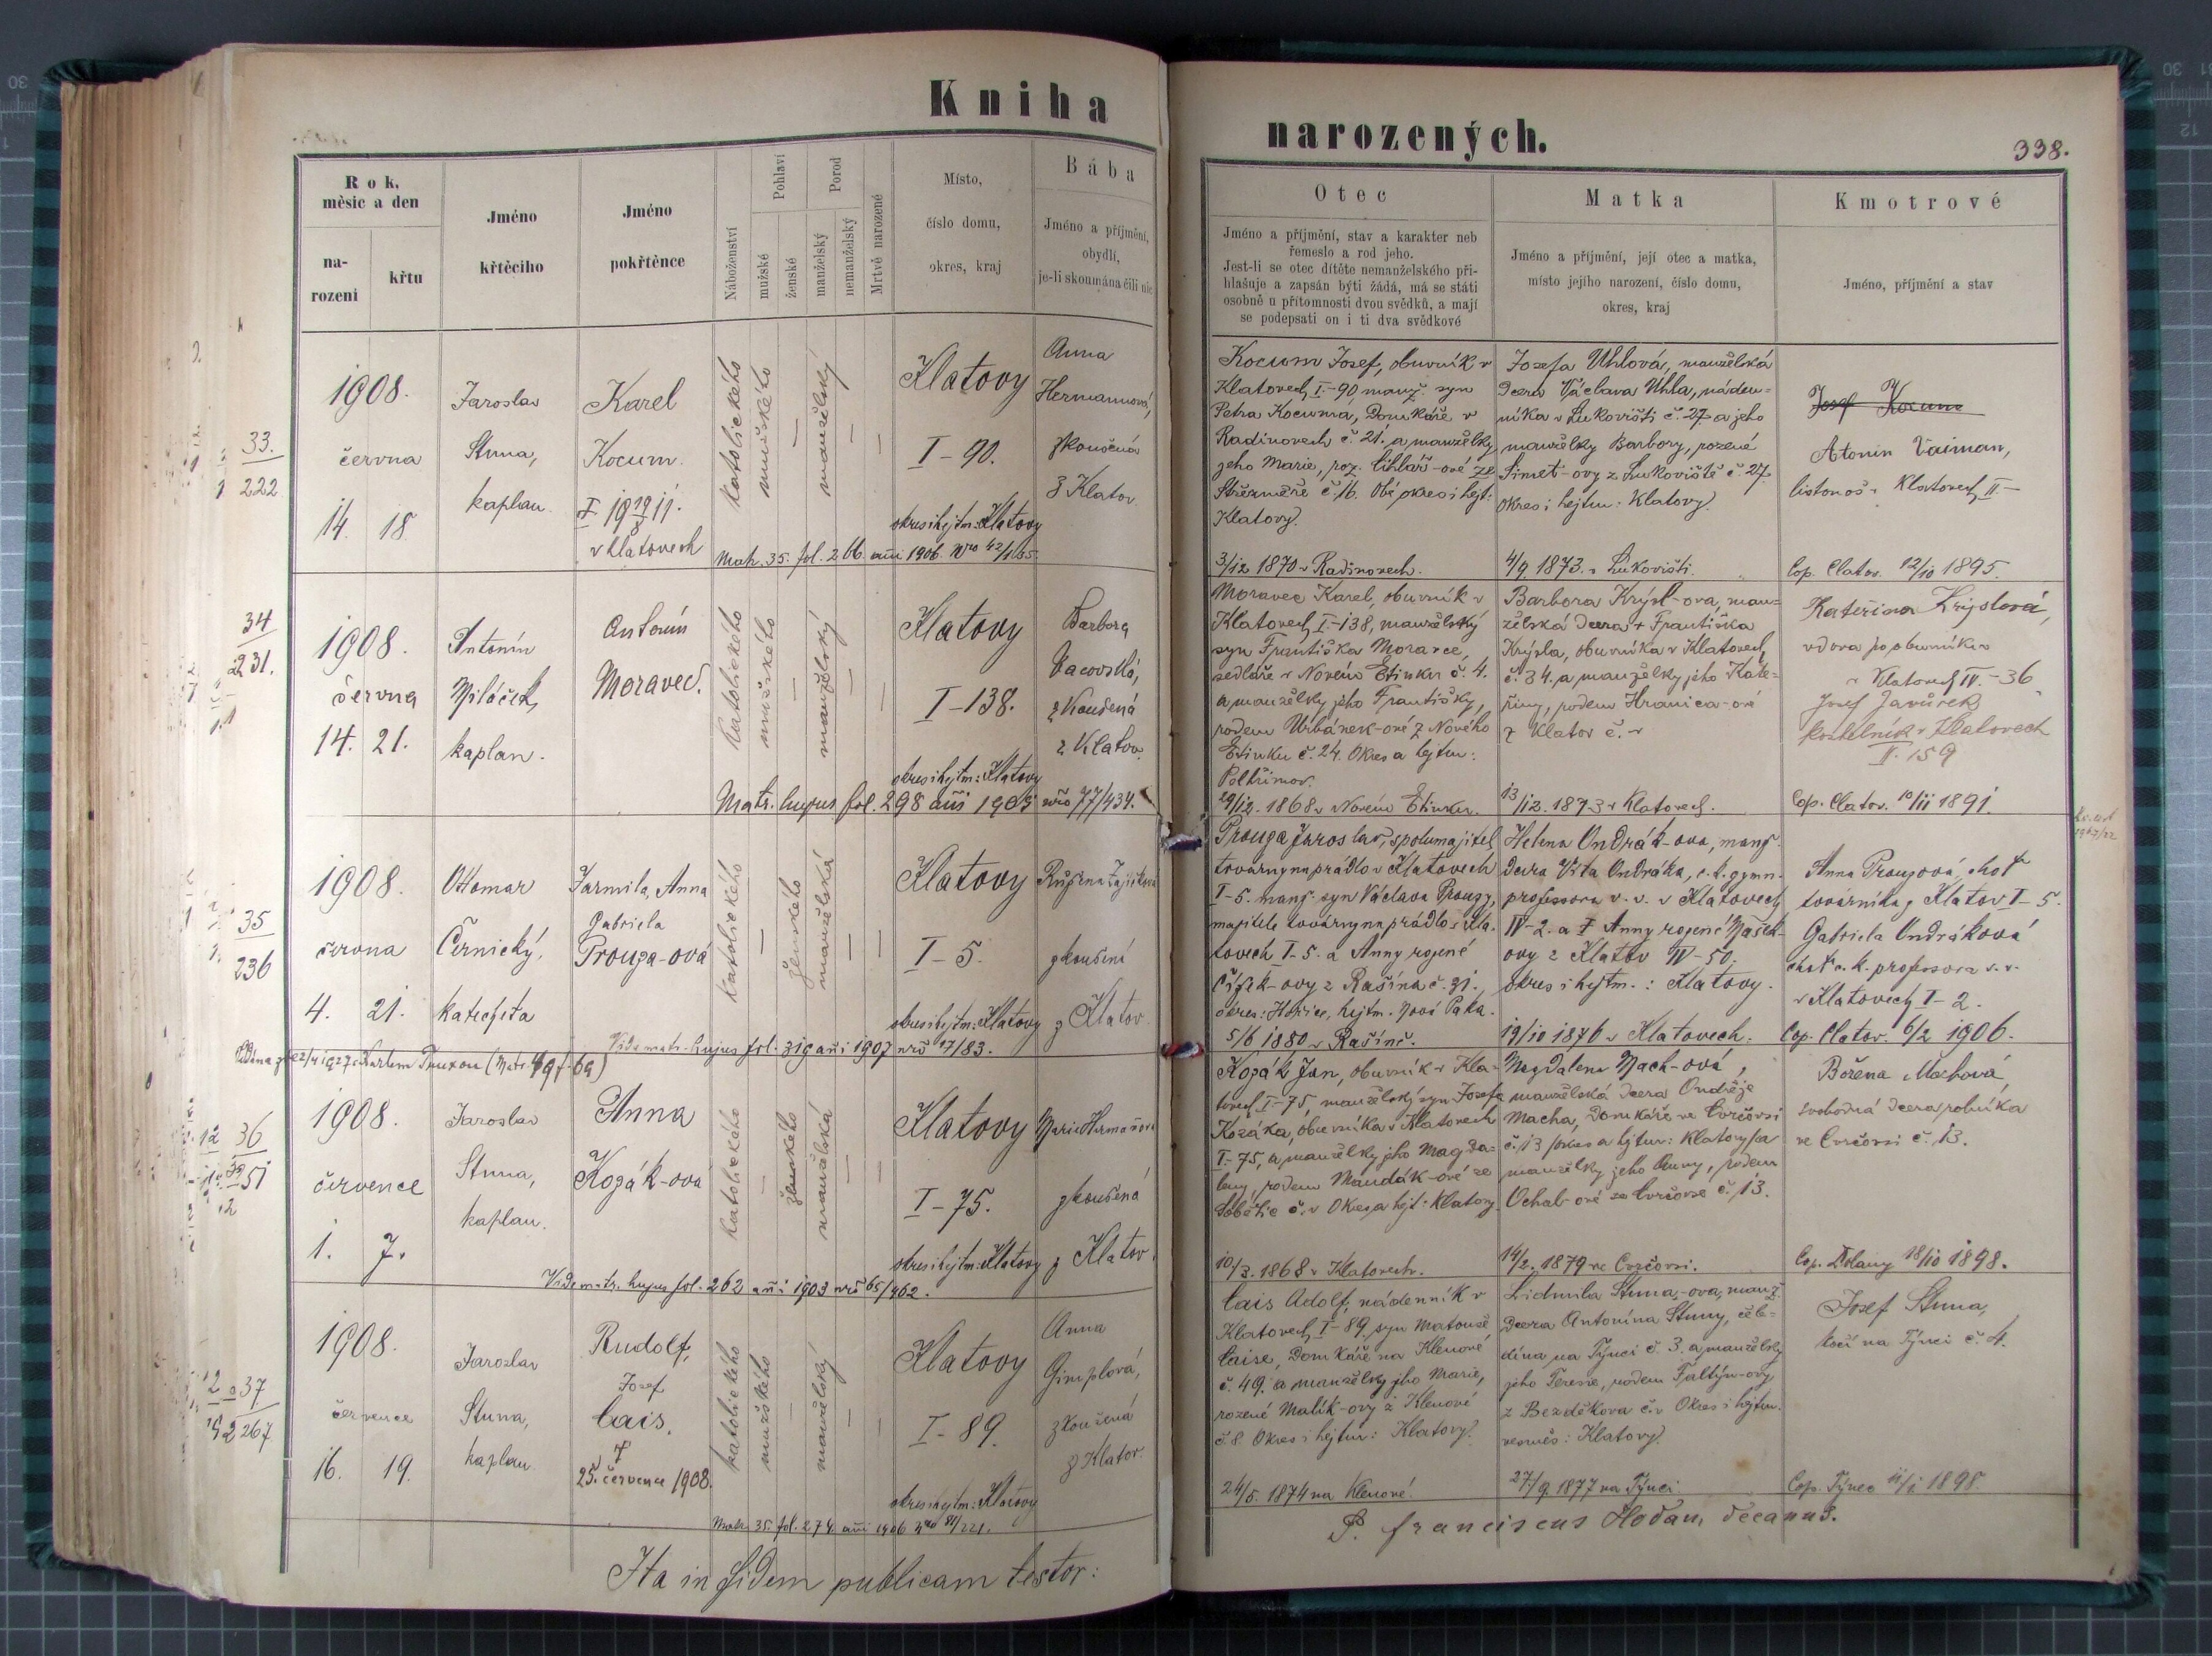 Kniha
narozených.
338.
Rok, měsic a den
na-
rozeni
křtu
Jméno
křtěcího
Jméno
pokřtěnce
Náboženství
Pohlaví
mužské
ženské
Porod
manželský
nemanželský
Mrtvě narozené
Místo,
číslo domu,
okres, kraj
Bába
Jméno a příjmění,
obydlí,
je-li skoumána čili nic
Otec
Jméno a příjmění, stav a karakter neb
řemeslo a rod jeho.
Jest-li se otec dítěte nemanželského při-
hlašuje a zapsán býti žádá, má se státi
osobně u přítomnosti dvou svědků, a mají
se podepsati on i ti dva svědkové
Matka
Jméno a příjmění, její otec a matka,
místo jejího narození, číslo domu,
okres, kraj
Kmotrové
Jméno, příjmění a stav
33.
222
1908.
června
14. 18.
Jaroslav
Stuna,
kaplan.
Karel
Kocum.
v Klatovech
katolického
mužského
—
manželský
—
—
Klatovy
I-90.
okres i hejtm: Klatovy
Anna
Hermannová,
zkoušená
z Klatov.
Matr. 35. fol. 266. anni 1906. Nro
Kocum Josef, obuvník v
Klatovech I-90, manž. syn
Petra Kocuma, domkáře v
Radinovech č. 21. a manželky
jeho Marie, roz. Cihlář-ové ze
Střezměře č. 16. Obé okres i hejt:
Klatovy.
3/12 1870 v Radinovech.
Josefa Uhlová, manželská
dcera Václava Uhla, náden-
níka v Lukovišti č. 27 a jeho
manželky Barbory, rozené
Šimet-ovy z Lukoviště č. 27.
Okres i hejtm: Klatovy.
4/9 1873. v Lukovišti.
Josef Kocum
Atonin Vaiman,
listonoš v Klatovech II-
Cop. Clatov. 12/10 1895.
34
231.
1908.
června
14. 21.
Antonín
Miláček,
kaplan.
Antonín
Moravec.
katolického
mužského
—
manželský
—
—
Klatovy
I-138.
okres i hejtm: Klatovy
Barbora
Vacovská,
zkoušená
z Klatov.
Matr. hujus fol. 298 anni 1905 nro 77/434.
Moravec Karel, obuvník v
Klatovech I-138, manželský
syn Františka Moravce,
sedláře v Novém Etinku č. 4.
a manželky jeho Františky,
rodem Urbánek-ové z Nového
Etinku č. 24. Okres a hejtm:
Pelhřimov.
29/12. 1868 v Novém Etinku.
Barbora Krýsl-ova, man-
želská dcera + Františka
Krýsla, obuvníka v Klatovech
č. 34. a manželky jeho Kate-
řiny, rodem Hranica-ové
z Klatov č. v
13/12. 1873 v Klatovech.
Kateřina Kryslová,
vdova po obuvníku
v Klatovech IV.-36
Josef Javůrek
kostelník v Klatovech
II. 159
Cop. Clatov. 10/11 1891.
35
236
1908.
června
4. 21.
Ottomar
Černický,
katecheta
Jarmila, Anna
Gabriela
Prouza-ová
katolického
—
ženského
manželská
—
—
Klatovy
I-5.
okres i hejtm: Klatovy
Růžena Zajíčková
zkoušení
z Klatov.
Vide matr. hujus fol. 319 anni 1907 nro 17/83.
Prouza Jaroslav, spolumajitel
továrny na prádlo v Klatovech
I-5. manž. syn Václava Prouzy,
majitele továrny na prádlo v Kla-
tovech I-5. a Anny rozené
Čížek-ovy z Rašína č. 31.
okres: Hořice, hejtm. Nová Paka.
5/6 1880 v Rašíně.
Helena Ondrák-ova, manž.
dcera Víta Ondráka, c. k. gymn.
professora v. v. v Klatovech
IV-2. a † Anny rozené Mašek-
ovy z Klatov IV-50.
okres i hejtm.: Klatovy.
19/10 1876 v Klatovech.
Anna Prouzová, choť
továrníka z Klatov I-5.
Gabriela Ondráková
choť c. k. professora v. v.
v Klatovech I-2.
Cop. Clatov. 6/2 1906.
36
251
1908.
července
1. 7.
Jaroslav
Stuna,
kaplan.
Anna
Kozák-ova
katolického
—
ženského
manželská
—
—
Klatovy
I-75.
okres i hejtm: Klatovy
Marie Hermanová
zkoušená
z Klatov.
Vide matr. hujus fol. 262 anni 1903 nro 65/462.
Kozák Jan, obuvník v Kla-
tovech I-75, manželský syn Josefa
Kozáka, obuvníka v Klatovech
I-75, a manželky jeho Magda-
leny, rodem Mandák-ové ze
Sobětic č. v Okres a hejt: Klatovy
10/3. 1868 v Klatovech.
Magdalena Mach-ová,
manželská dcera Ondřeje
Macha, domkáře ve Cvrčovsi
č. 13 /okres a hejtm: Klatovy/ a
manželky jeho Anny, rodem
Ochab-ové ze Cvrčovse č. 13.
14/2. 1879 ve Cvrčovsi.
Božena Machová,
svobodná dcera rolníka
ve Cvrčovsi č. 13.
Cop. Dolany 18/10 1898.
37
267
1908.
července
16. 19.
Jaroslav
Stuna,
kaplan
Rudolf,
Josef
Cais.
†
25. července 1908.
katolického
mužského
—
manželský
—
—
Klatovy
I-89.
okres i hejtm: Klatovy
Anna
Gimplová,
zkoušená
z Klatov.
Matr. 35. fol. 274 anni 1906
Cais Adolf, nádenník v
Klatovech I-89. syn Matouše
Caise, domkáře na Klenové
č. 49. a manželky jeho Marie,
rozené Malík-ovy z Klenové
č. 8. Okres i hejtm: Klatovy.
24/5. 1874 na Klenové.
Lidmila Stuna-ova, manž.
dcera Antonína Stuny, čele-
dína na Týnci č. 3. a manželky
jeho Teresie, rodem Faltýn-ovy
z Bezděkova č. v Okres i hejtm.
vesměs: Klatovy.
27/9 1877 na Týnci.
Josef Stuna,
kočí na Týnci č. 4.
Cop. Týnec 11/1 1898.
Ita in fidem publicam testor:
P. Franciscus Hodan, decanus.